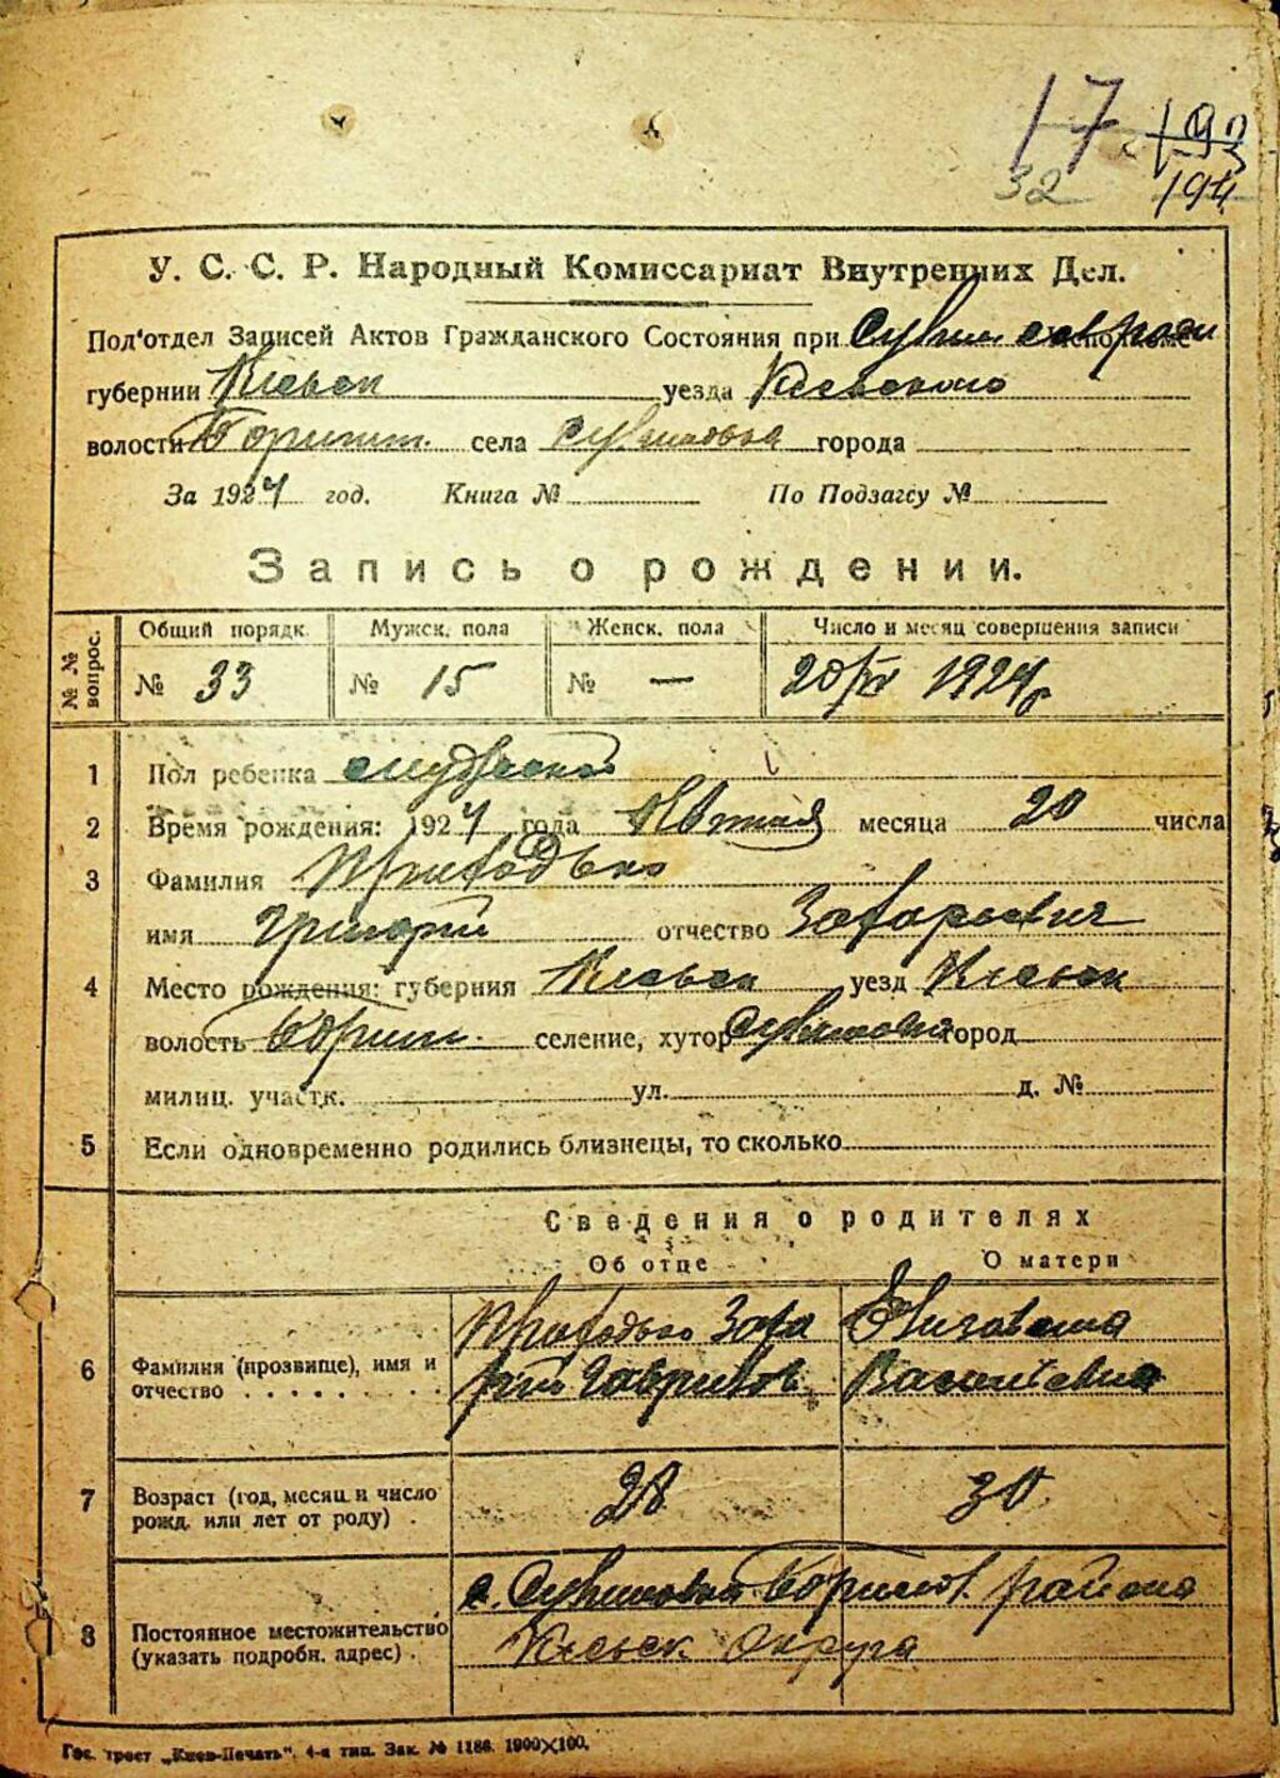 17 193
32 194
У. С. С. Р. Народный Комиссариат Внутренних Дел.
Под'отдел Записей Актов Гражданского Состояния при
губернии Киевск уезда Киевского
волости Борисп. села города
За 1924 год. Книга № По Подзагсу №
Запись о рождении.
№ № вопрос. Общий порядк. Мужск. пола Женск. пола Число и месяц совершения записи
№ 33 № 15 № — 20/IV 1924 г
1 Пол ребенка мужеской
2 Время рождения: 1924 года месяца 20 числа
3 Фамилия Приходько
имя Григорий отчество Захарьевич
4 Место рождения: губерния Киевск уезд Киевск
волость Борисп. селение, хутор город
милиц. участк. ул. д. №
5 Если одновременно родились близнецы, то сколько
Сведения о родителях
Об отце О матери
6 Фамилия (прозвище), имя и отчество Приходько Заха
рий Гаврилов
7 Возраст (год, месяц и число рожд. или лет от роду) 28 30
8 Постоянное местожительство (указать подробн. адрес) с. района
Киевск округа
Гос. трест „Киев-Печать". 4-я тип. Зак. № 1186. 1900×100.